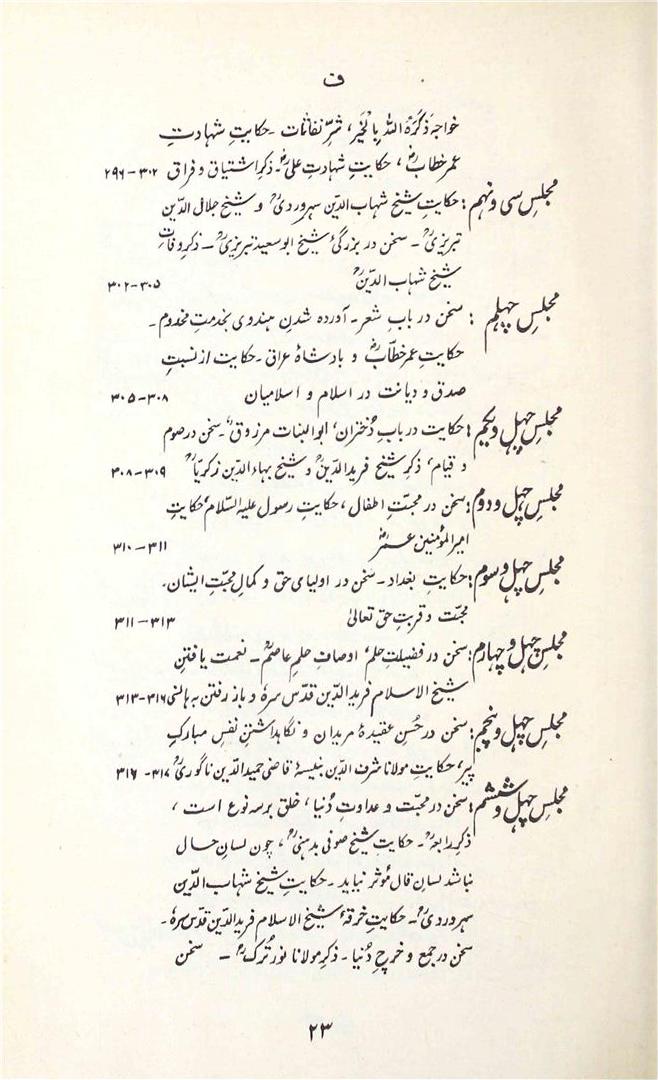 ف
خواجه ذَکَرَهُ اللهُ بِالْخَیْر، شرِّ نفاثات ـ حکایتِ شهادتِ
عمر خطابؓ، حکایتِ شهادتِ علیؓ ـ ذکرِ اشتیاق و فراق ۳۰۲-۲۹۶
مجلسِ سی و نهم: حکایتِ شیخ شهاب الدّین سهروردیؒ و شیخ جلال الدّین
تبریزیؒ ـ سخن در بزرگیٔ شیخ ابو سعید تبریزیؒ ـ ذکرِ وفاتِ
شیخ شهاب الدّینؒ ۳۰۵-۳۰۲
مجلسِ چهلم : سخن در بابِ شعر ـ آورده شدنِ هندوی بخدمتِ مخدوم ـ
حکایتِ عمر خطّابؓ و بادشاهٔ عراق ـ حکایت از نسبتِ
صدق و دیانت در اسلام و اسلامیان ۳۰۸-۳۰۵
مجلسِ چهل و یکم: حکایت در بابِ دُختران، ابوالبنات مرزوقؒ ـ سخن در صوم
و قیام، ذکرِ شیخ فرید الدّینؒ و شیخ بهاء الدّین زکریّاؒ ۳۰۹-۳۰۸
مجلسِ چهل و دوم: سخن در محبّتِ اطفال، حکایتِ رسول علیه السّلام، حکایتِ
امیر المؤمنین عمرؓ ۳۱۱-۳۱۰
مجلسِ چهل و سوم: حکایتِ بغداد ـ سخن در اولیای حق و کمالِ محبّتِ ایشان ـ
محبّت و قربتِ حق تعالیٰ ۳۱۳-۳۱۱
مجلسِ چهل و چهارم: سخن در فضیلتِ حلم، اوصافِ حلمِ عاصمؒ ـ نعمت یافتنِ
شیخ الاسلام فرید الدّین قدّس سرهٗ و باز رفتن به هانسی ۳۱۶-۳۱۳
مجلسِ چهل و پنجم: سخن در حُسنِ عقیدهٔ مریدان و نگاهداشتنِ نفسِ مبارکِ
پیر، حکایتِ مولانا شرف الدّین نبیسهٔ قاضی حمید الدّین ناگوریؒ ۳۱۷-۳۱۶
مجلسِ چهل و ششم: سخن در محبّت و عداوتِ دُنیا، خلق بر سه نوع است،
ذکرِ رابعهؒ ـ حکایتِ شیخ صوفی بدهنیؒ، چون لسانِ حال
نباشد لسانِ قال مُوثر نیاید ـ حکایتِ شیخ شهاب الدّین
سهروردیؒ ـ حکایتِ خرقهٔ شیخ الاسلام فرید الدّین قدّس سرهٗ ـ
سخن در جمع و خرجِ دُنیا ـ ذکرِ مولانا نور تُرکؒ ـ سخن
۲۳